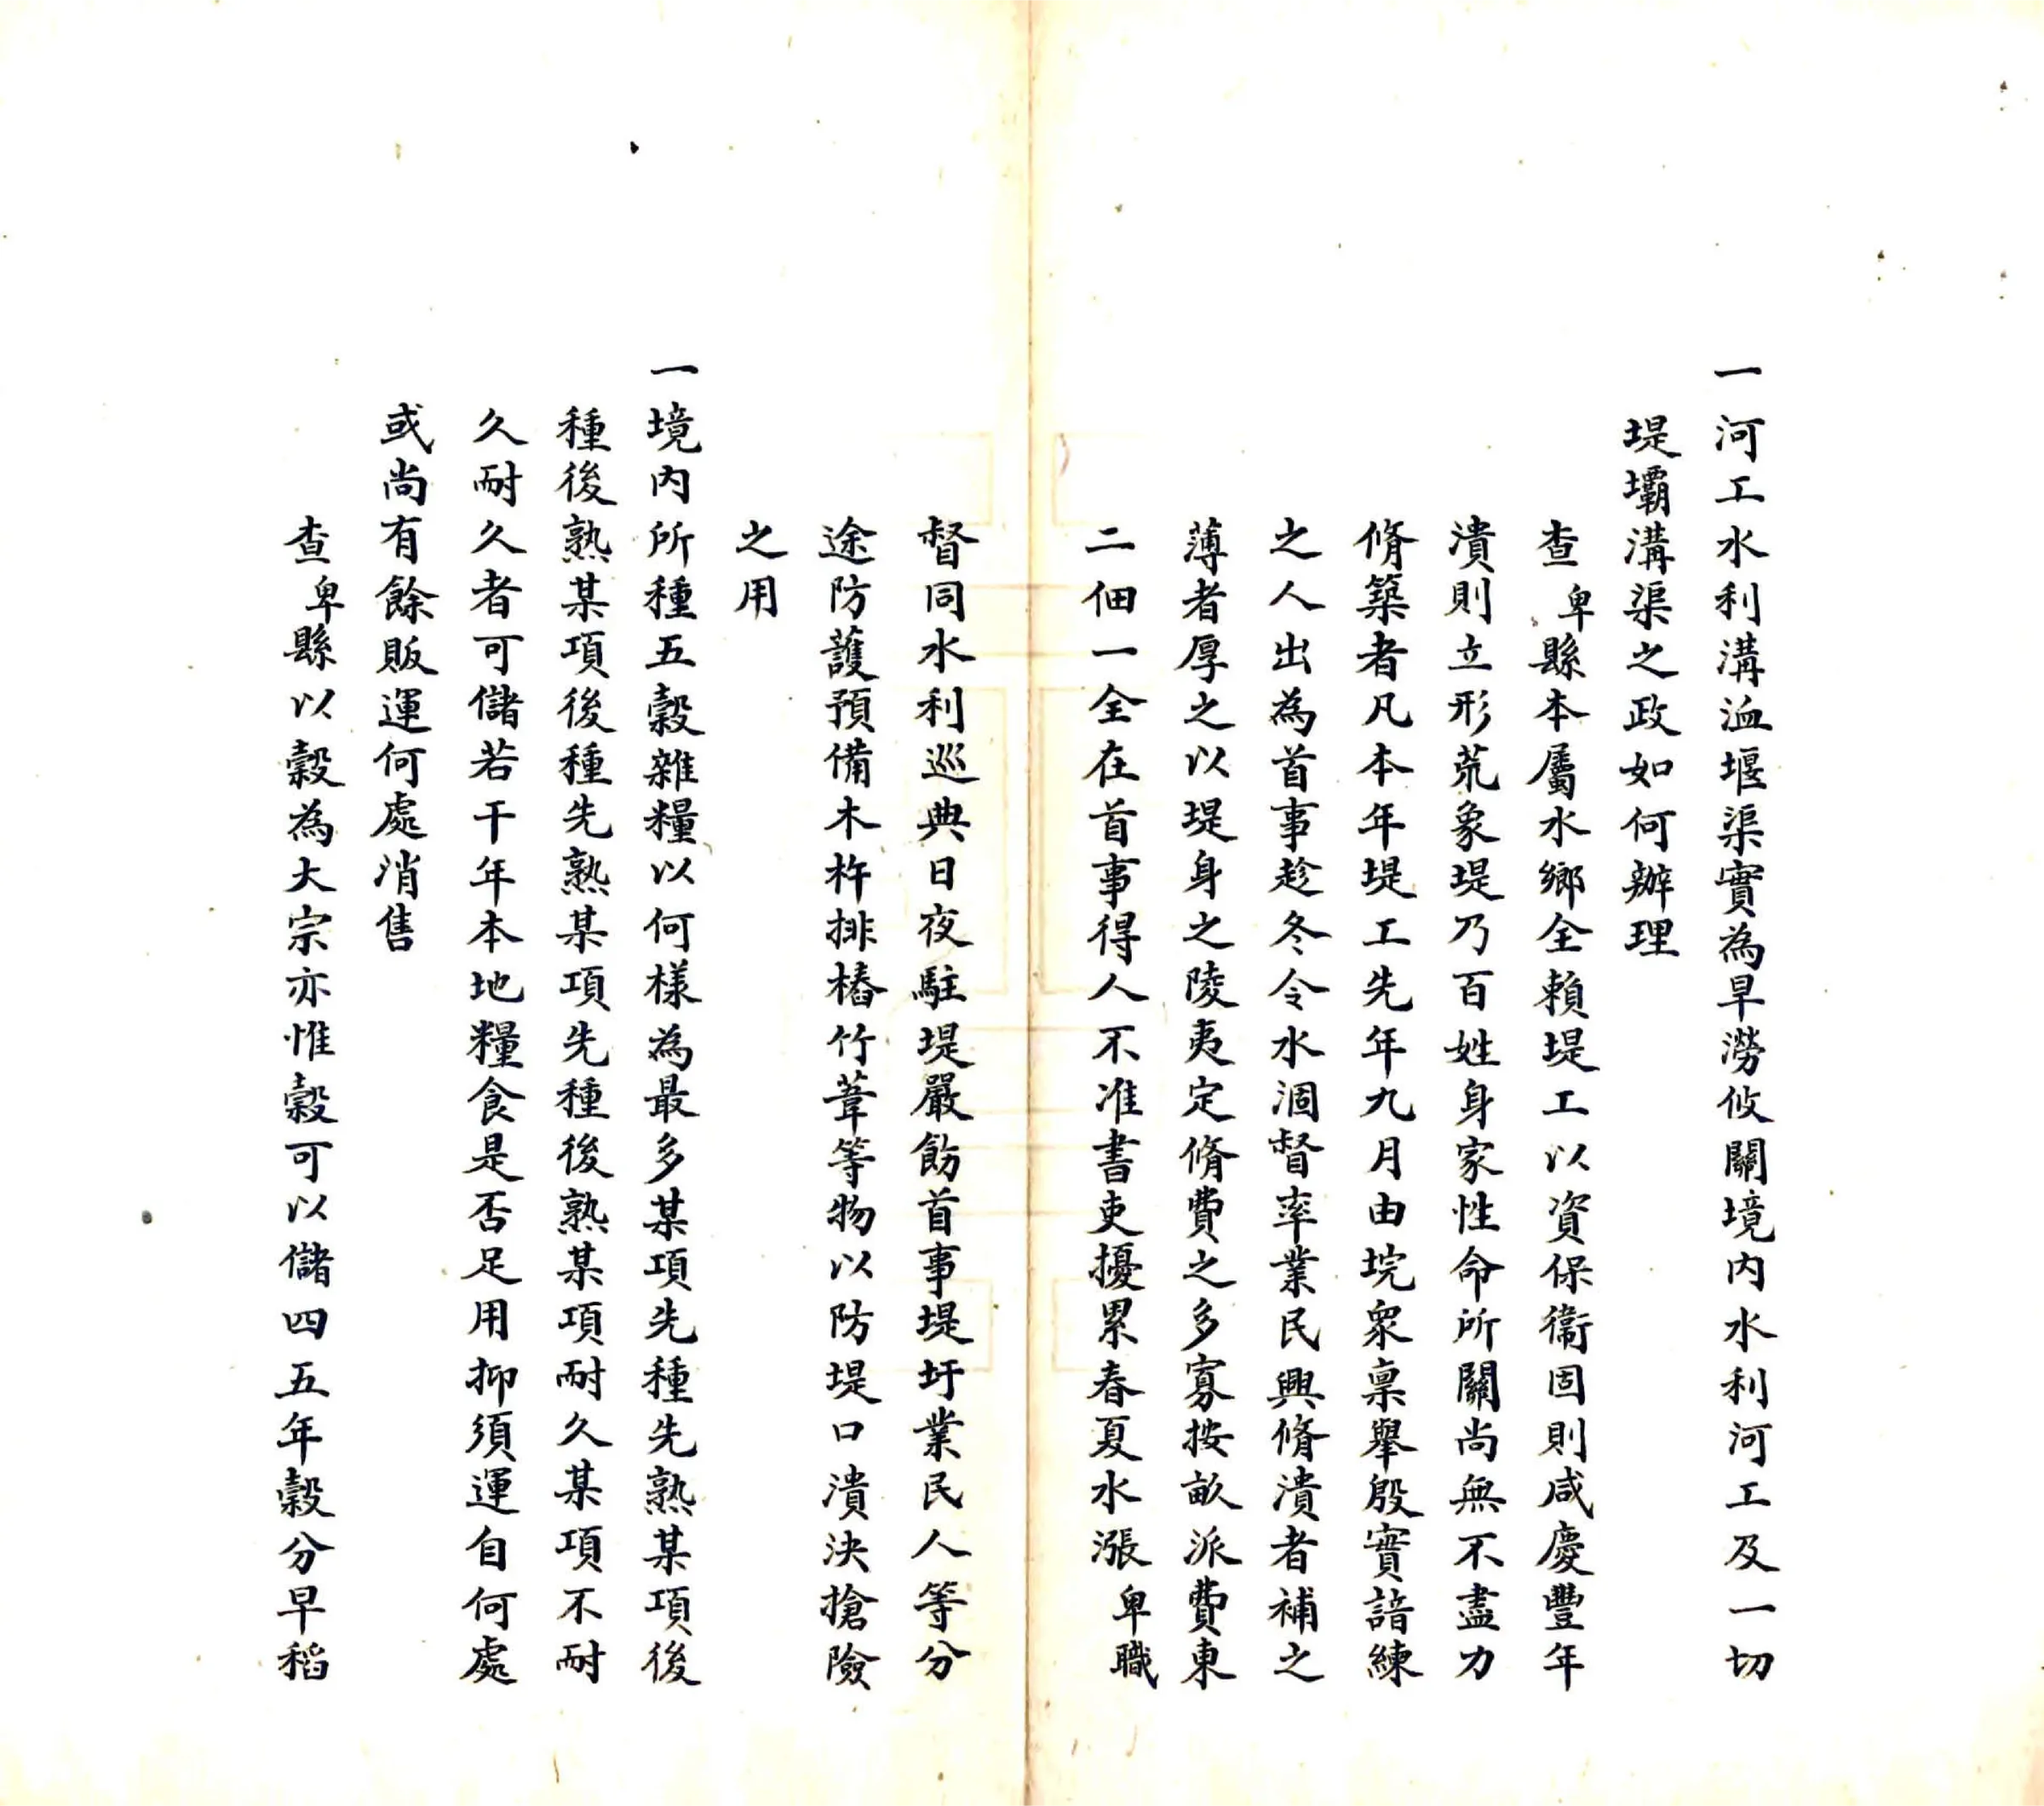 一河工水利溝洫堰渠實為旱澇攸關境内水利河工及一切
堤壩溝渠之政如何辦理
查卑縣本屬水鄉全賴堤工以資保衞固則咸慶豐年
潰則立形荒象堤乃百姓身家性命所關尚無不盡力
脩築者凡本年堤工先年九月由垸衆禀舉殷實諳練
之人出為首事趁冬令水涸督率業民興脩潰者補之
薄者厚之以堤身之陵夷定脩費之多寡按畝派費東
二佃一全在首事得人不准書吏擾累春夏水漲卑職
督同水利巡典日夜駐堤嚴飭首事堤圩業民人等分
途防護預備木杵排樁竹葦等物以防堤口潰決搶險
之用
一境内所種五穀雜糧以何樣為最多某項先種先熟某項後
種後熟某項後種先熟某項先種後熟某項耐久某項不耐
久耐久者可儲若干年本地糧食是否足用抑須運自何處
或尚有餘販運何處消售
查卑縣以穀為大宗亦惟穀可以儲四五年穀分早稻